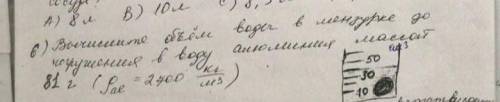 А) 8 л В) 10 л С) 8,
6) Вычислите объём воды в мензурке до
погружения в воду алюминия массой
81 г (ρал = 2700 кг/м3)
50
30
10